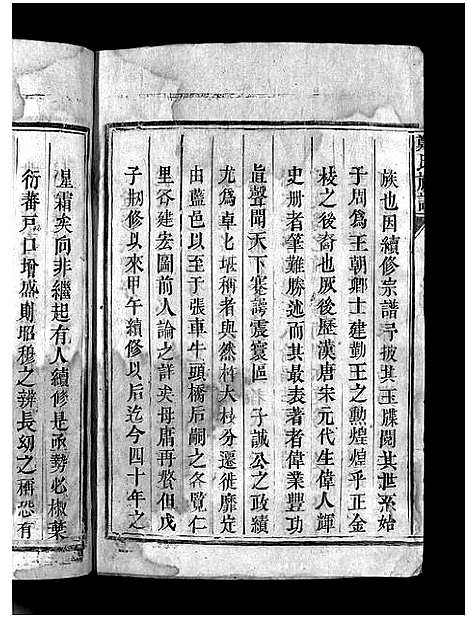 鄭氏族譜
族也因續修宗譜予披其玉牒閱其世系始
于周爲王朝卿士建勤王之勳煌煌乎正金
枝之後裔也厥後歷漢唐宋元代生偉人輝
史册者筆難勝述而其最表著者偉業豐功
眞聲聞天下蹇諤震寰區子誠公之政績
尤爲卓卜堪稱者與然科大枝分遷徙靡定
由藍邑以至于張車牛頭橋后嗣之各覧仁
里各建宏圖前人論之詳矣毋庸再贅但戊
子刱修以來甲午續修以后迄今四十年之
星霜矣向非繼起有人續修是亟勢必椒葉
衍蕃戸口增盛則昭穆之辨長幼之稱恐有